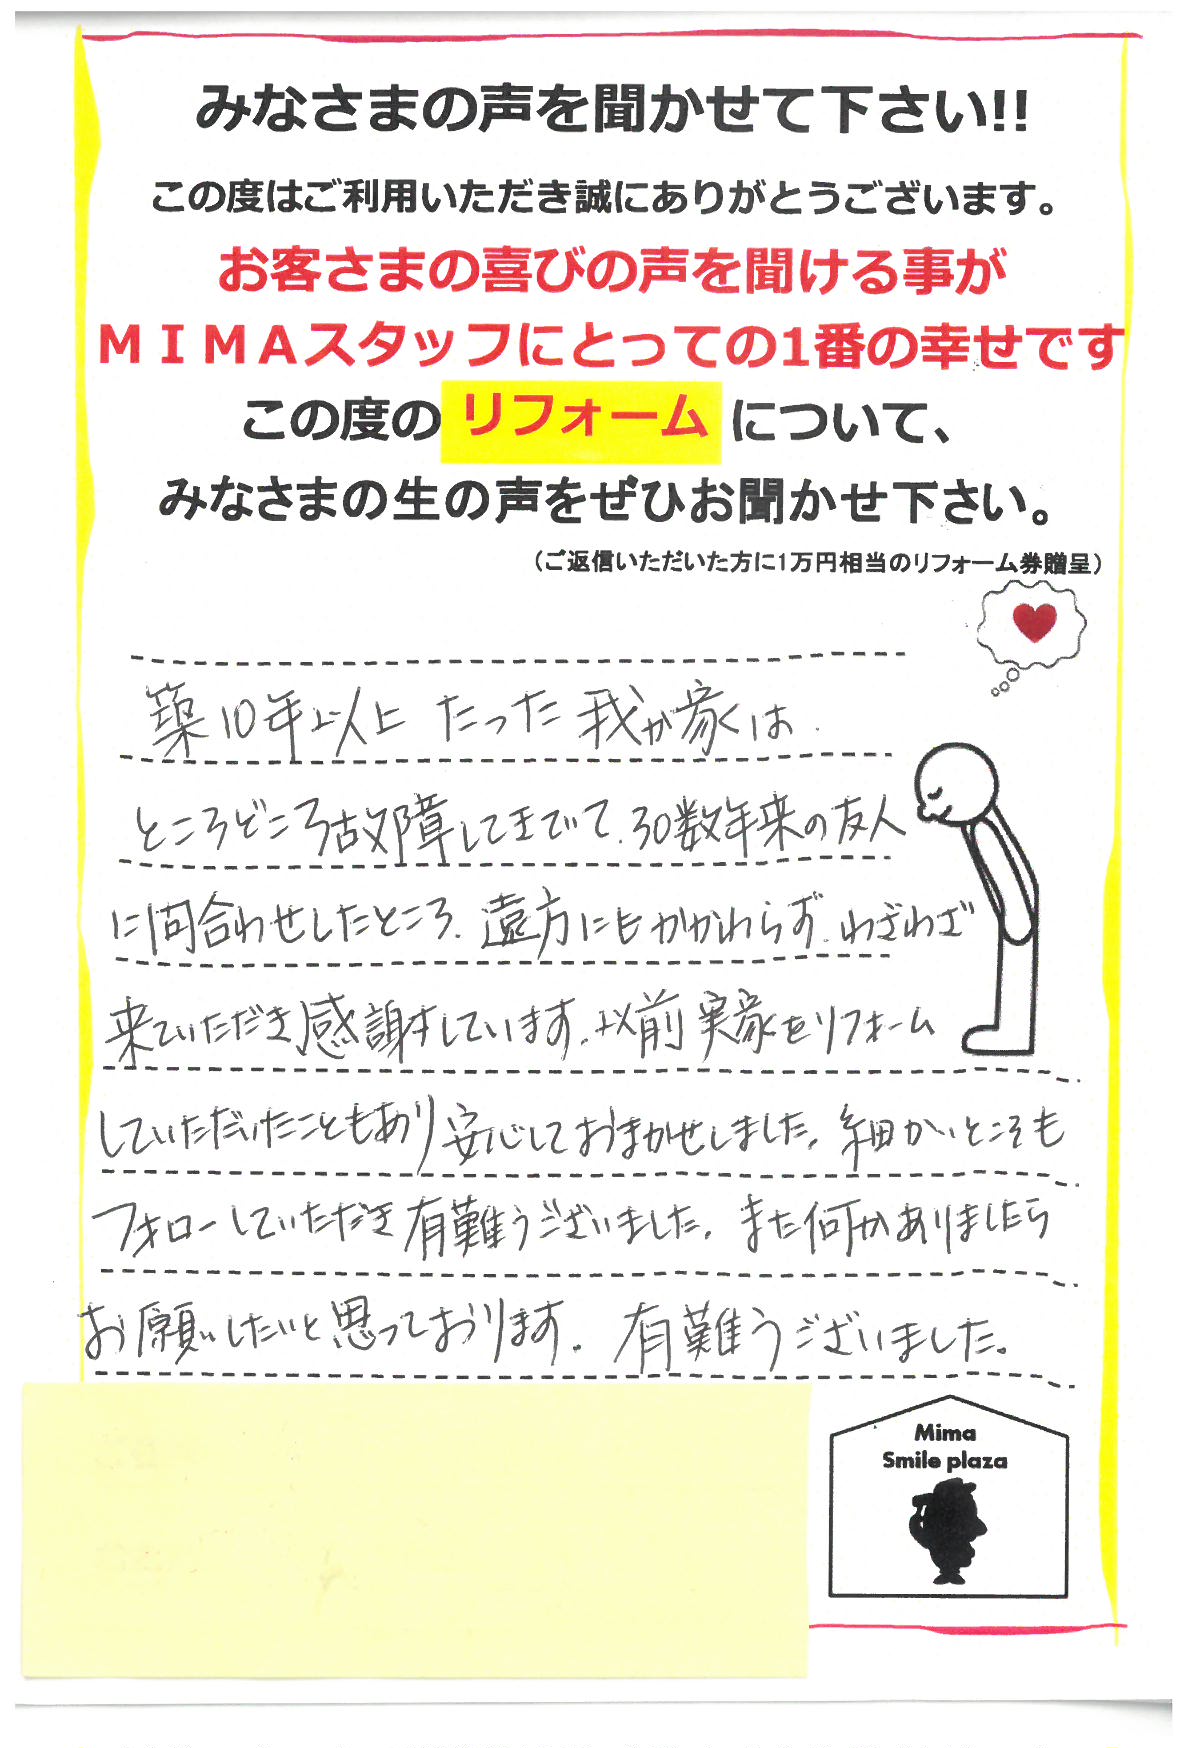 みなさまの声を聞かせて下さい!!
この度はご利用いただき誠にありがとうございます。
お客さまの喜びの声を聞ける事が
ＭＩＭＡスタッフにとっての1番の幸せです
この度の リフォーム について、
みなさまの生の声をぜひお聞かせ下さい。
（ご返信いただいた方に1万円相当のリフォーム券贈呈）
築10年以上 たった 我が家は
ところどころ故障してきていて、30数年来の友人
に問合わせしたところ、遠方にもかかわらず、わざわざ
来ていただき感謝しています。以前 実家をリフォーム
していただいたこともあり 安心しておまかせしました。細かいところも
フォローしていただき 有難うございました。また何かありましたら
お願いしたいと思っております。有難うございました。
Mima
Smile plaza